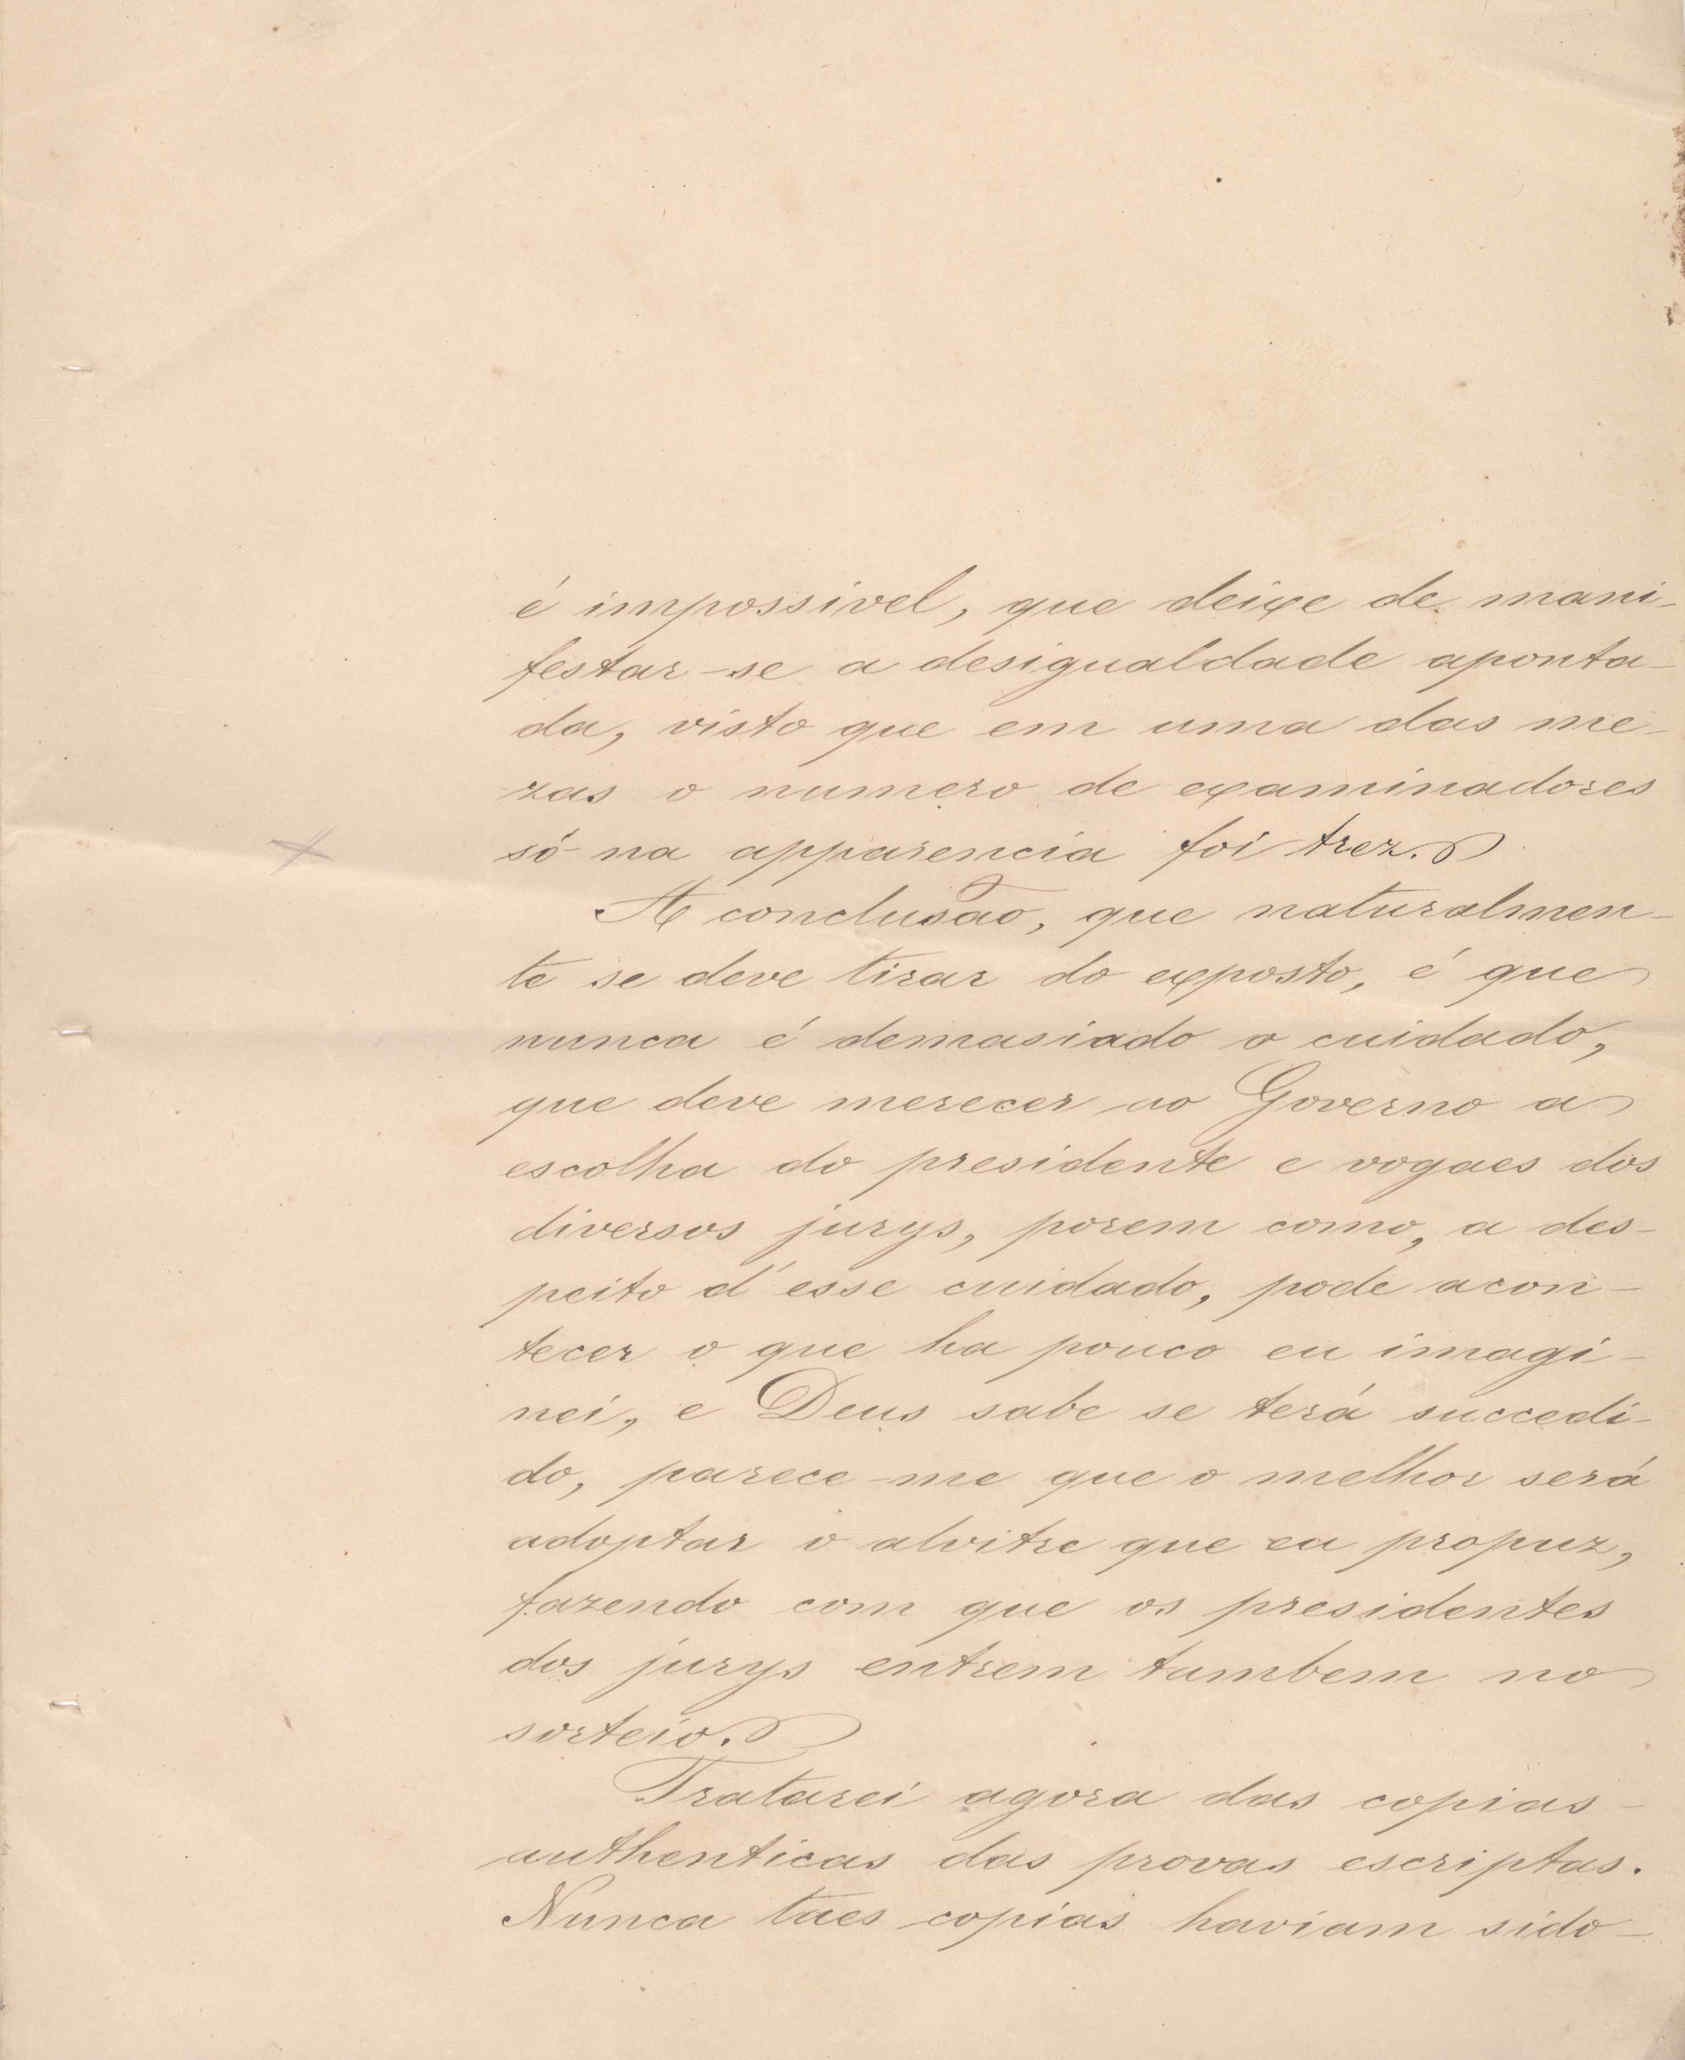 é impossivel, que deixe de mani-
festar-se a desigualdade aponta-
da, visto que em uma das me-
zas o numero de examinadores
só na apparencia foi trez.
A conclusão, que naturalmen-
te se deve tirar do exposto, é que
nunca é demasiado o cuidado,
que deve merecer ao Governo a
escolha do presidente e vogaes dos
diversos jurys, porem como, a des-
peito d'esse cuidado, pode acon-
tecer o que ha pouco eu imagi-
nei, e Deus sabe se terá succedi-
do, parece-me que o melhor será
adoptar o alvitre que eu propuz,
fazendo com que os presidentes
dos jurys entrem tambem no
sorteio.
Tratarei agora das copias
authenticas das provas escriptas.
Nunca taes copias haviam sido